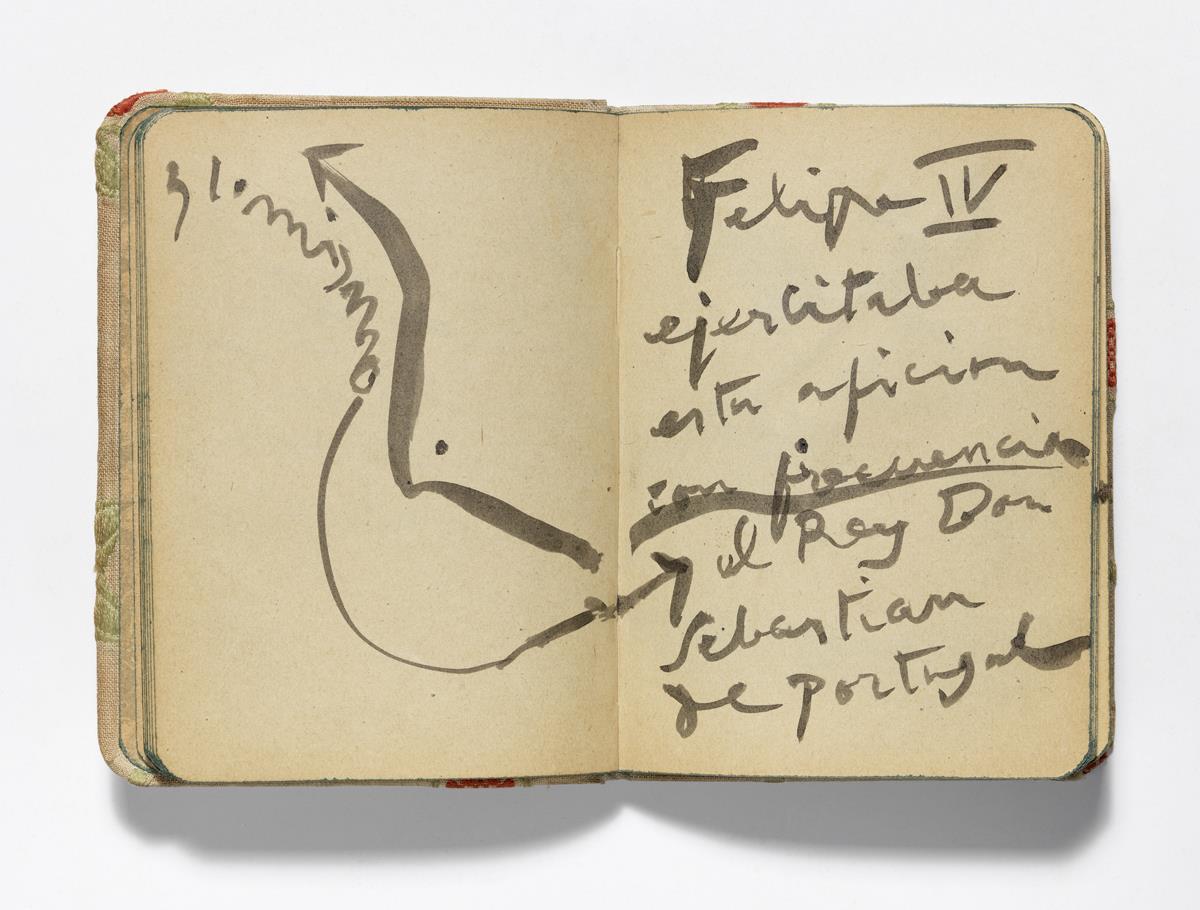 y lo mismo
Felipe IV
ejercitaba
esta aficion
con frecuencia
el Rey Don
Sebastian
de Portugal